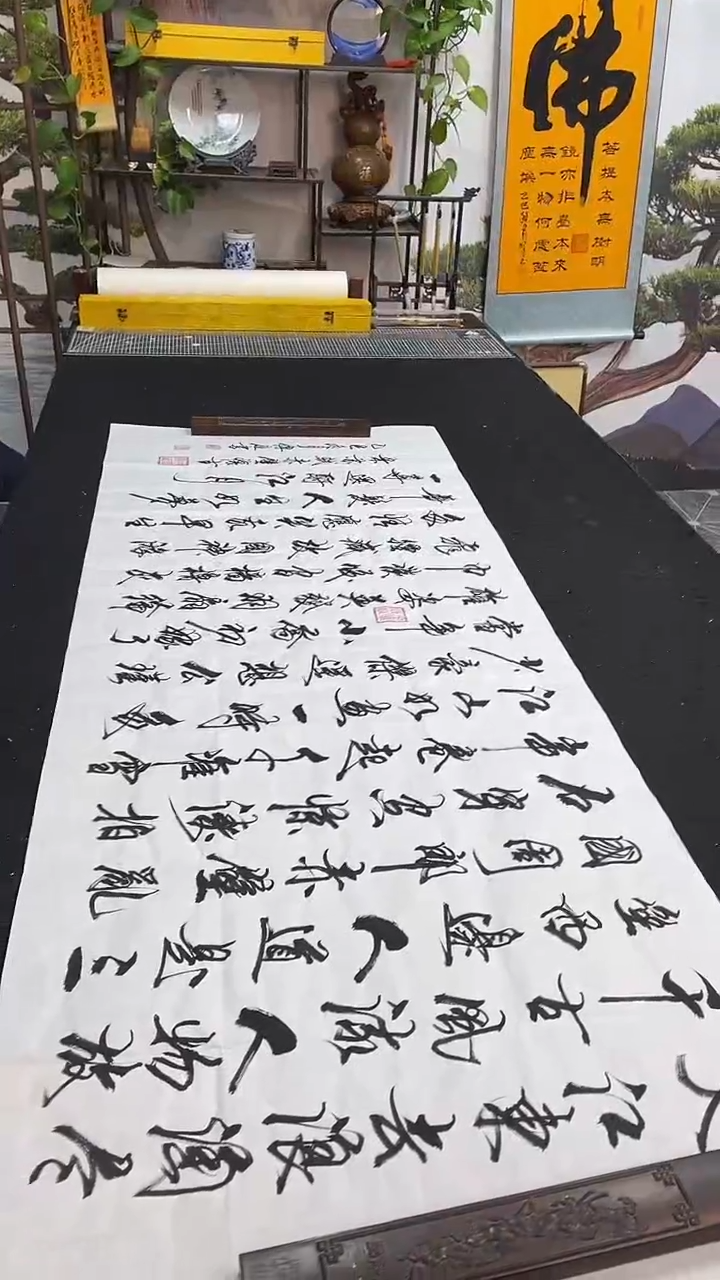 佛
菩提本無樹明
鏡亦非臺本來
無一物何處惹
塵埃
大江東去浪淘尽
千古風流人物故
壘西邊人道是三
國周郎赤壁亂
石穿空驚濤拍
岸卷起千堆雪
江山如畫一時多
少豪傑遙想公瑾
當年小喬初嫁了
雄姿英發羽扇綸
巾談笑間檣櫓灰
飛煙滅故國神遊
多情應笑我早生
華髮人生如夢
一尊還酹江月